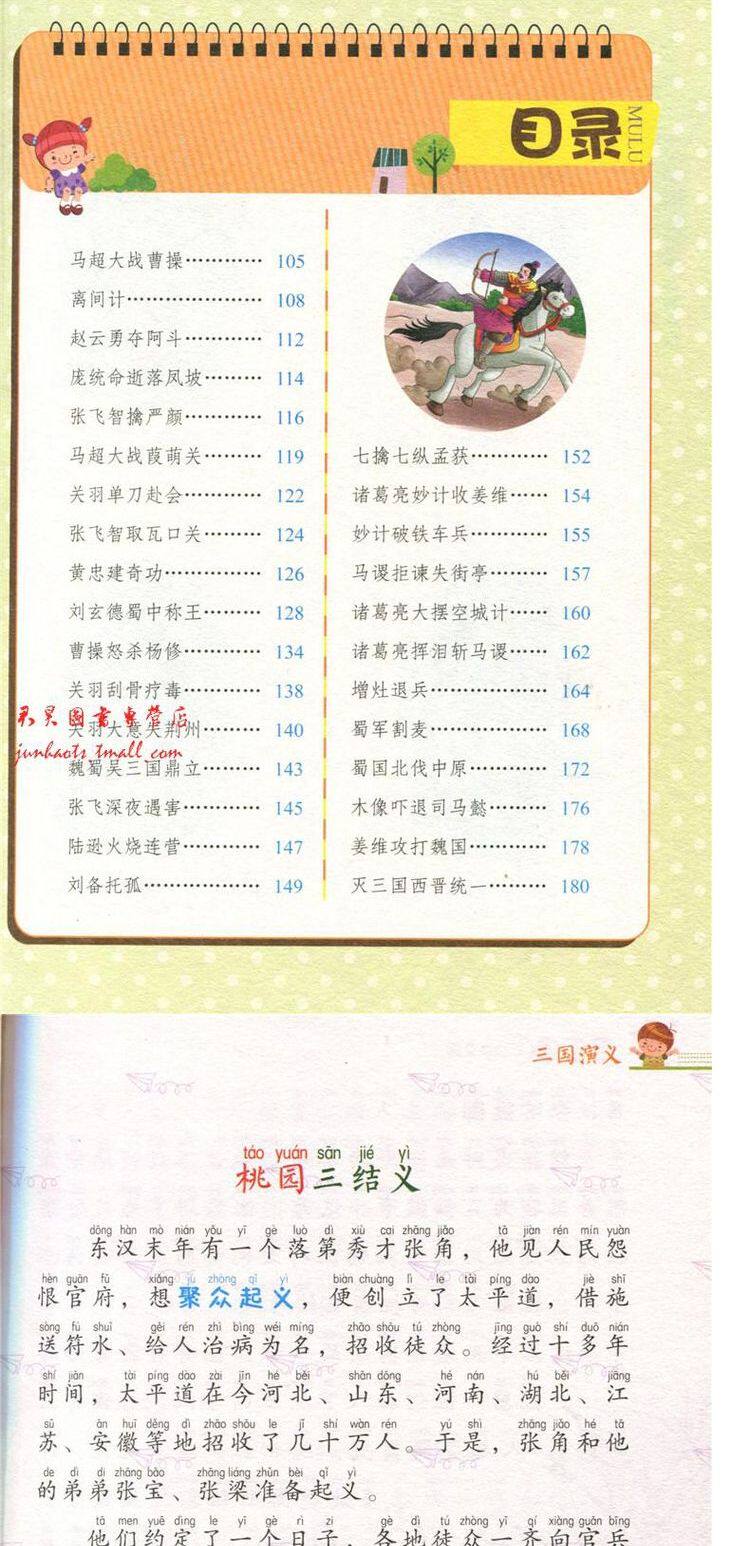 目录
MULU
马超大战曹操………… 105
离间计………………… 108
赵云勇夺阿斗………… 112
庞统命逝落凤坡……… 114
张飞智擒严颜………… 116
马超大战葭萌关……… 119
关羽单刀赴会………… 122
张飞智取瓦口关……… 124
黄忠建奇功…………… 126
刘玄德蜀中称王……… 128
曹操怒杀杨修………… 134
关羽刮骨疗毒………… 138
君昊图书专营店
关羽大意失荆州……… 140
junhaots.tmall.com
魏蜀吴三国鼎立……… 143
张飞深夜遇害………… 145
陆逊火烧连营………… 147
刘备托孤……………… 149
七擒七纵孟获………… 152
诸葛亮妙计收姜维…… 154
妙计破铁车兵………… 155
马谡拒谏失街亭……… 157
诸葛亮大摆空城计…… 160
诸葛亮挥泪斩马谡…… 162
增灶退兵……………… 164
蜀军割麦……………… 168
蜀国北伐中原………… 172
木像吓退司马懿……… 176
姜维攻打魏国………… 178
灭三国西晋统一……… 180
三国演义
táo yuán sān jié yì
桃园三结义
dōng hàn mò nián yǒu yī gè luò dì xiù cai zhāng jiǎo tā jiàn rén mín yuàn
东汉末年有一个落第秀才张角，他见人民怨
hèn guān fǔ xiǎng jù zhòng qǐ yì biàn chuàng lì le tài píng dào jiè shī
恨官府，想聚众起义，便创立了太平道，借施
sòng fú shuǐ gěi rén zhì bìng wéi míng zhāo shōu tú zhòng jīng guò shí duō nián
送符水、给人治病为名，招收徒众。经过十多年
shí jiān tài píng dào zài jīn hé běi shān dōng hé nán hú běi jiāng
时间，太平道在今河北、山东、河南、湖北、江
sū ān huī děng dì zhāo shōu le jǐ shí wàn rén yú shì zhāng jiǎo hé tā
苏、安徽等地招收了几十万人。于是，张角和他
de dì di zhāng bǎo zhāng liáng zhǔn bèi qǐ yì
的弟弟张宝、张梁准备起义。
tā men yuē dìng le yī gè rì zi gè dì tú zhòng yī qí xiàng guān bīng
他们约定了一个日子，各地徒众一齐向官兵